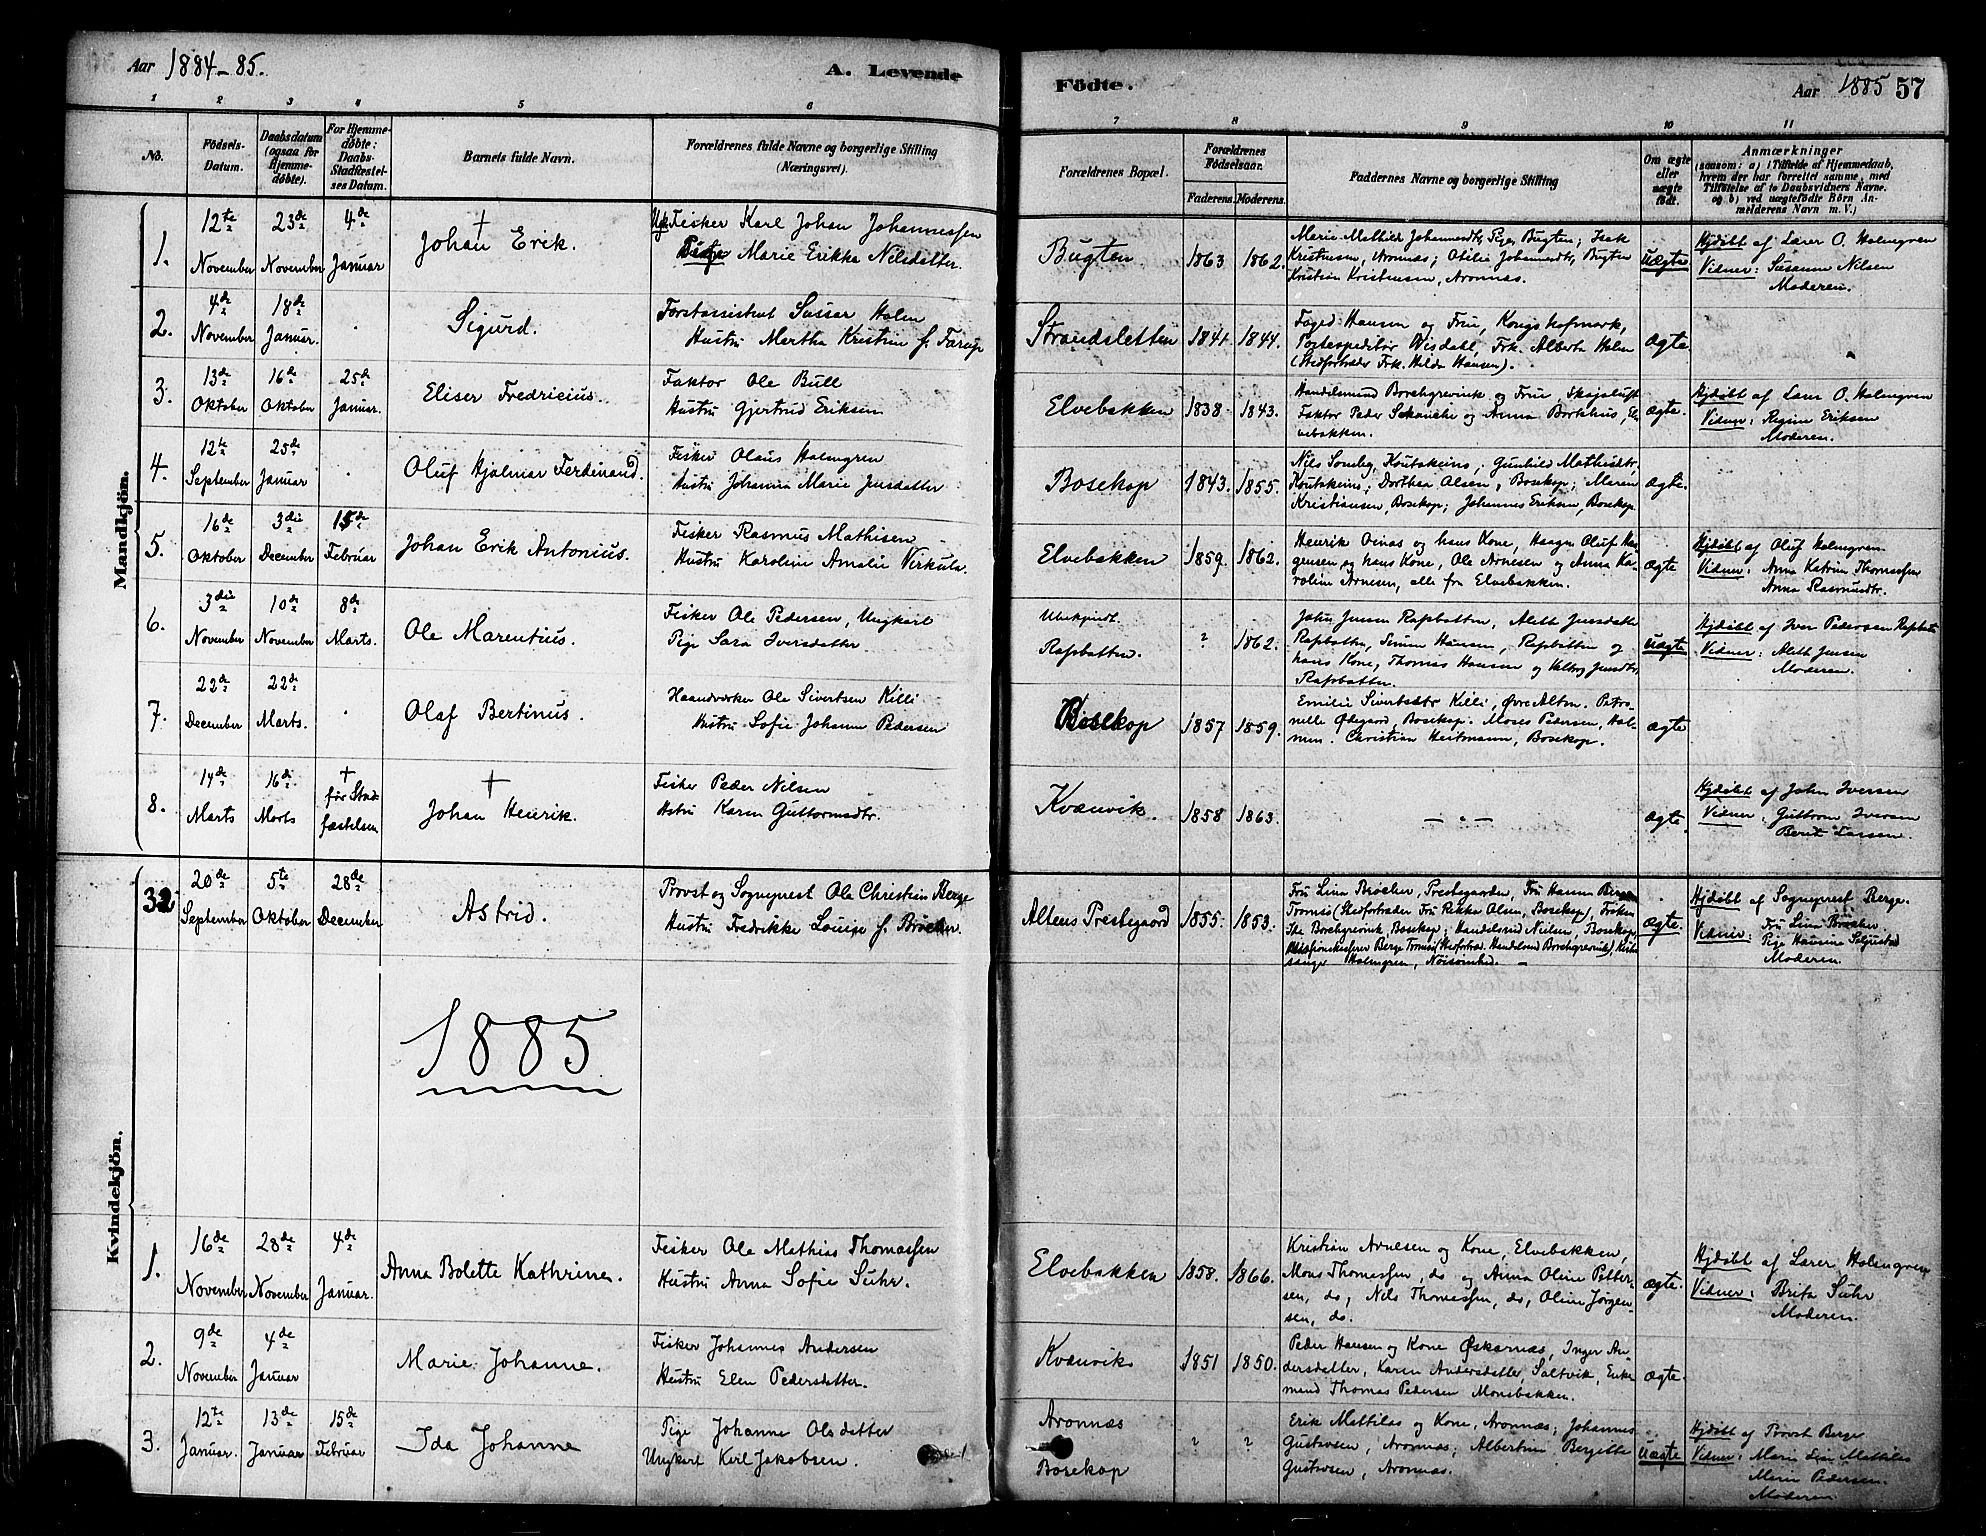 Aar 1884-85.
A. Levende
Fødte.
Aar 1885 57
1 2 3 4 5 6 7 8 9 10 11
No.
Födsels-Datum.
Daabsdatum (ogsaa for Hjemme-døbte).
For Hjemme-døbte: Daabs-Stadfæstel-ses Datum.
Barnets fulde Navn.
Forældrenes fulde Navne og borgerlige Stilling (Næringsvei).
Forældrenes Bopæl.
Forældrenes Fødselsaar.
Faderens. Moderens.
Faddernes Navne og borgerlige Stilling
Om ægte eller uægte født.
Anmærkninger
(saasom: a) i Tilfælde af Hjemmedaab, hvem der har forrettet samme, med Tilføielse af to Daabsvidners Navne. og b) ved uægtefødte Börn An-melderens Navn m. V.)
Mandkjön.
1. 12te November 23de November 4de Januar
† Johan Erik.
Ugk. Fisker Karl Johan Johannessen
Pige Marie Erikka Nilsdatter.
Bugten 1863 1862.
Marie Mathild Johannesdtr, Pige, Bugten; Isak
Kristensen, Aronnæs; Otilie Johannesdtr, Bugten
Kristian Kristensen, Aronnæs.
uægte
Hjdöbt af Lærer O. Holmgren
Vidner: Susanne Nilsen
Moderen.
2. 4de November 18de Januar.
Sigurd.
Forstassistent Holm
Hustru Martha Kristin f. Farup
Strandsletten 1841 1844.
Foged Hansen og Frue, Kongshofmark,
Postexpeditör Wisdahl, Frk. Alberta Holm
(Stedfortræder Frk. Hilda Hansen).
ægte
3. 13de Oktober 16de Oktober 25de Januar.
Eliser Fredricius.
Faktor Ole Bull
Hustru Gjertrud Eriksen
Elvebakken 1838 1843.
Handelsmand Borchgrevink og Frue,
Faktor Peder og Anna Borkhus, El-
vebakken.
ægte.
Hjdöbt af Lærer O. Holmgren
Vidner: Regine Eriksen
Moderen.
4. 12te September 25de Januar
Oluf Hjalmar Ferdinand.
Fisker Olaus Holmgren
Hustru Johanna Marie Jensdatter
Bosekop 1843. 1855.
Nils Somby, Koutokeino; Gunhild Mathisdtr.
Koutokeino; Dorthea Olsen, Bosekop; Maren
Kristiansen, Bosekop; Johannes Eriksen, Bosekop.
ægte.
5. 16de Oktober 3die December 15de Februar
Johan Erik Antonius.
Fisker Rasmus Mathisen
Hustru Karoline Amalie Virkula.
Elvebakken 1859. 1862.
Henrik Oinas og hans Kone, Haagen Oluf Haa-
gensen og hans Kone, Ole Arnesen og Anna Ka-
roline Arnesen, alle fra Elvebakken.
ægte
Hjdöbt af Oluf Holmgren.
Vidner: Anna Katrin Thomassen
Anna Rasmusdtr.
6. 3die November 10de November 8de Marts.
Ole Marentius.
Fisker Ole Pedersen, Ungkarl
Pige Sara Iversdatter.
Ubekjendt.
Rafsbotten. ? 1862.
John Jensen Rafsbotten, Aleth Jensdatter
Rafsbotten, Simon Hansen, Rafsbotten og
hans Kone, Thomas Hansen og Jensdtr,
Rafsbotten.
uægte
Hjdöbt af Iver Pedersen Rafsbotn
Vidner: Aleth Jensen
Moderen.
7. 22de December 22de Marts.
Olaf Bertinus.
Haandværker Ole Sivertsen Killi
Hustru Sofie Johanne Pedersen
Bosekop 1857 1859.
Emilie Sivertsdtr Killi, Øvre Alten. Petro-
nelle Ødegaard, Bosekop. Moses Pedersen, Hol-
men. Christian Heitmann, Bosekop.
ægte
8. 14de Marts 16de Marts † før Stad-fæstelsen
† Johan Henrik.
Fisker Peder Nilsen
Hstru Karen Guttormsdtr.
Kvænvik. 1858 1863.
— „ —
ægte.
Hjdöbt af John Iversen
Vidner: Guttorm Iversen
Berit Larsen.
Kvindekjön.
32 20de September 5te Oktober 28de December
Astrid.
Provst og Sogneprest Ole Christian Berge
Hustru Fredrikke Louise f. Bröcher.
Altens Prestegaard 1855. 1853.
Fru Lina Bröcher, Prestegaarden, Fru Hanna Berge
Tromsö (Stedfortræder Fru Rikka Olsen, Bosekop), Fröken
Ida Borchgrevink Bosekop; Handelsmd Nielsen, Bosekop,
Berge Tromsö (Stedfortræd. Handelsmd Borchgrevink), Kirke-
sanger Holmgren, Nöisomhed. —
ægte.
Hjdöbt af Sogneprest Berge.
Vidner: Fru Lina Bröcher.
Pige Hansine
Moderen.
1885
1. 16de November 28de November 4de Januar.
Anna Bolette Kathrine.
Fisker Ole Mathias Thomassen
Hustru Anna Sofie Suhr.
Elvebakken 1858. 1866.
Kristian Arnesen og Kone, Elvebakken,
Mons Thomassen, do og Anna Oline Petter-
sen, do, Nils Thomassen, do, Oline Jørgen-
sen, do.
ægte.
Hjdöbt af Lærer Holmgren
Vidner: Brita Suhr
Moderen.
2. 9de November 4de Januar
Marie Johanne.
Fisker Johannes Andersen
Hustru Elen Pedersdatter.
Kvænvik 1851 1850.
Peder Hansen og Kone Øskarnæs, Inger An-
dersdatter, Karen Andersdatter, Saltvik, Enke-
mand Thomas Pedersen Monsbakken.
ægte.
3. 12te Januar. 13de Januar 15de Februar
Ida Johanne
Pige Johanne Olsdatter
Ungkarl Karl Jakobsen.
Aronnæs
Bosekop ? ?
Erik Mattilas og Kone, Aronnæs; Johannes
Gustavsen, Aronnæs; Albertine Bergette
Gustavsen, Aronnæs.
uægte
Hjdöbt af Provst Berge
Vidner: Marie Lisa Mathilas
Marie Pedersen.
Moderen.